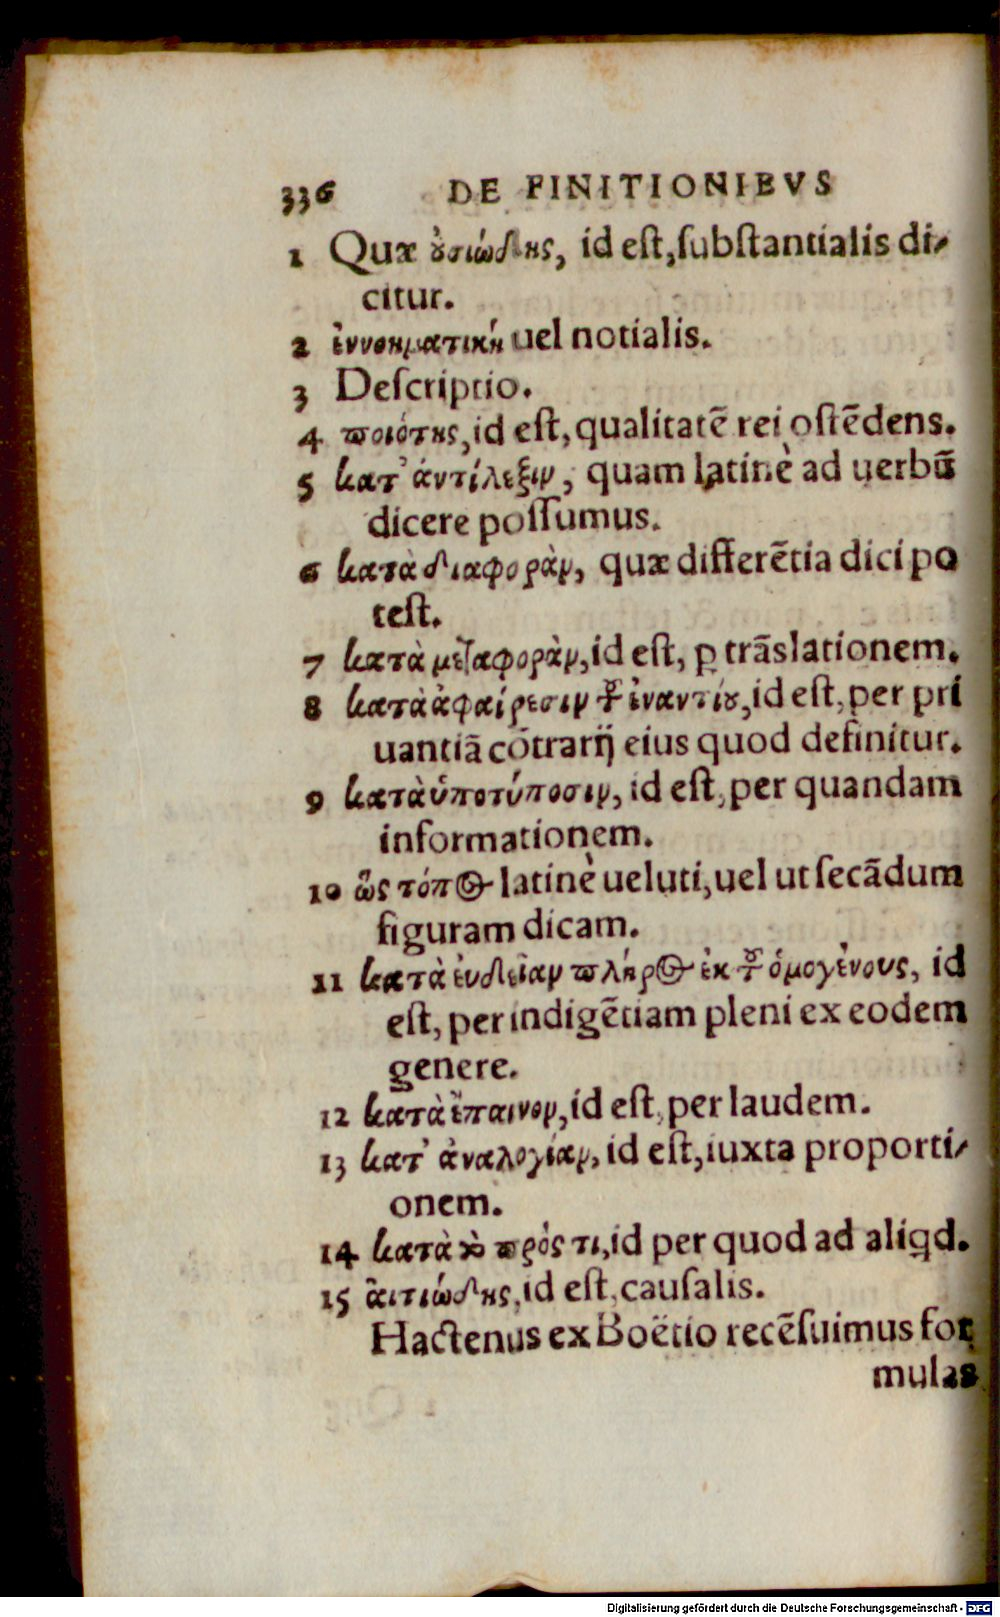 336 DE FINITIONIBVS
1 Quæ ȣ̓σιώδης, id est, substantialis di-
citur.
2 ἐννοηματικὴ uel notialis.
3 Descriptio.
4 ποιότης, id est, qualitatē rei ostēdens.
5 κατ' ἀντίλεξιν, quam latinè ad uerbũ
dicere possumus.
6 κατὰ διαφορὰν, quæ differētia dici po
test.
7 κατὰ μεταφορὰν, id est, ꝑ trāslationem.
8 κατὰ ἀφαίρεσιν τȣ͂ ἐναντίȣ, id est, per pri
uantiā cōtrarij eius quod definitur.
9 κατὰ ὑποτύποσιν, id est, per quandam
informationem.
10 ὣς τόπος latinè ueluti, uel ut secādum
figuram dicam.
11 κατὰ ἐνδείαν πλήρος ἐκ τȣ͂ ὁμογένους, id
est, per indigētiam pleni ex eodem
genere.
12 κατὰ ἔπαινον, id est, per laudem.
13 κατ' ἀναλογίαν, id est, iuxta proporti-
onem.
14 κατὰ τὸ πρός τι, id per quod ad aliqd.
15 ἀιτιώδης, id est, causalis.
Hactenus ex Boëtio recēsuimus for
mulas
Digitalisierung gefördert durch die Deutsche Forschungsgemeinschaft - DFG